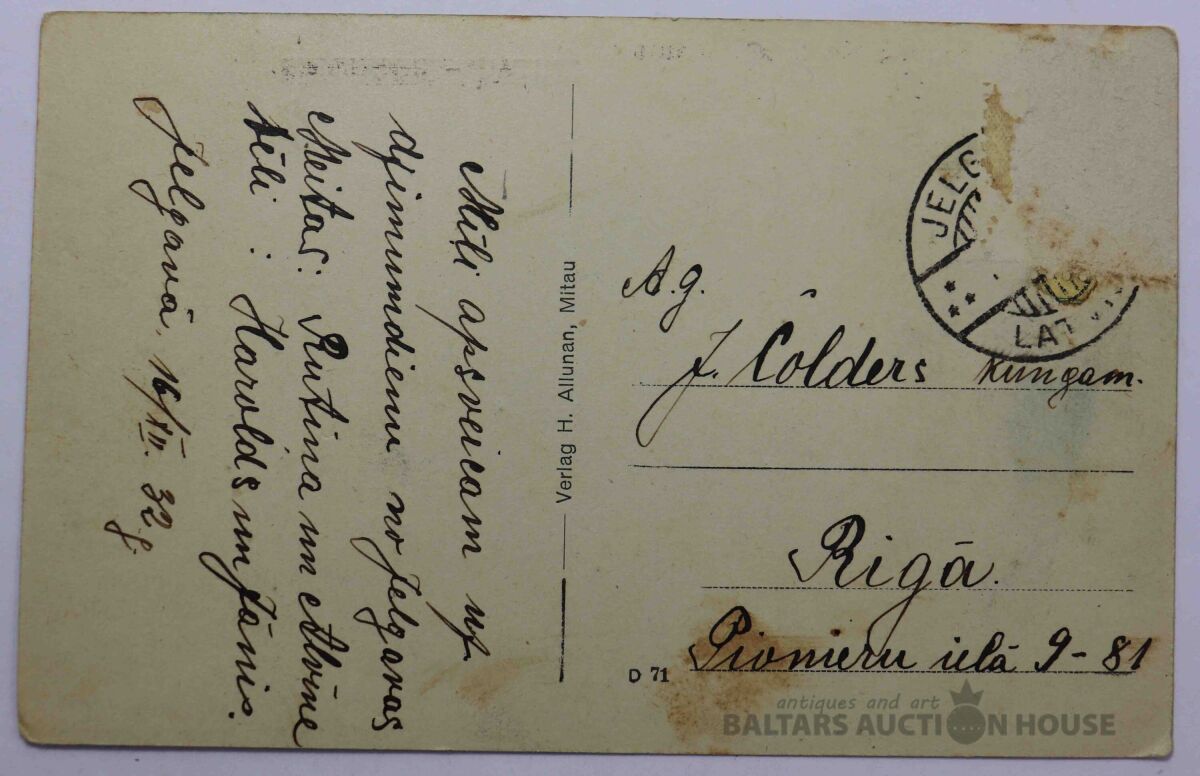 Mīļi apsveicam uz
dzimumdienu no Jelgavas
Meitas: Rutina un Alvine
tēli: Harolds un Jānis.
Jelgavā, 16/XII. 32 g.
Verlag H. Allunan, Mitau
D 71
JELG
LATVI
A.g.
J. Colders kungam.
Rīgā.
Pionieru ielā 9-81
antiques and art
BALTARS AUCTION HOUSE